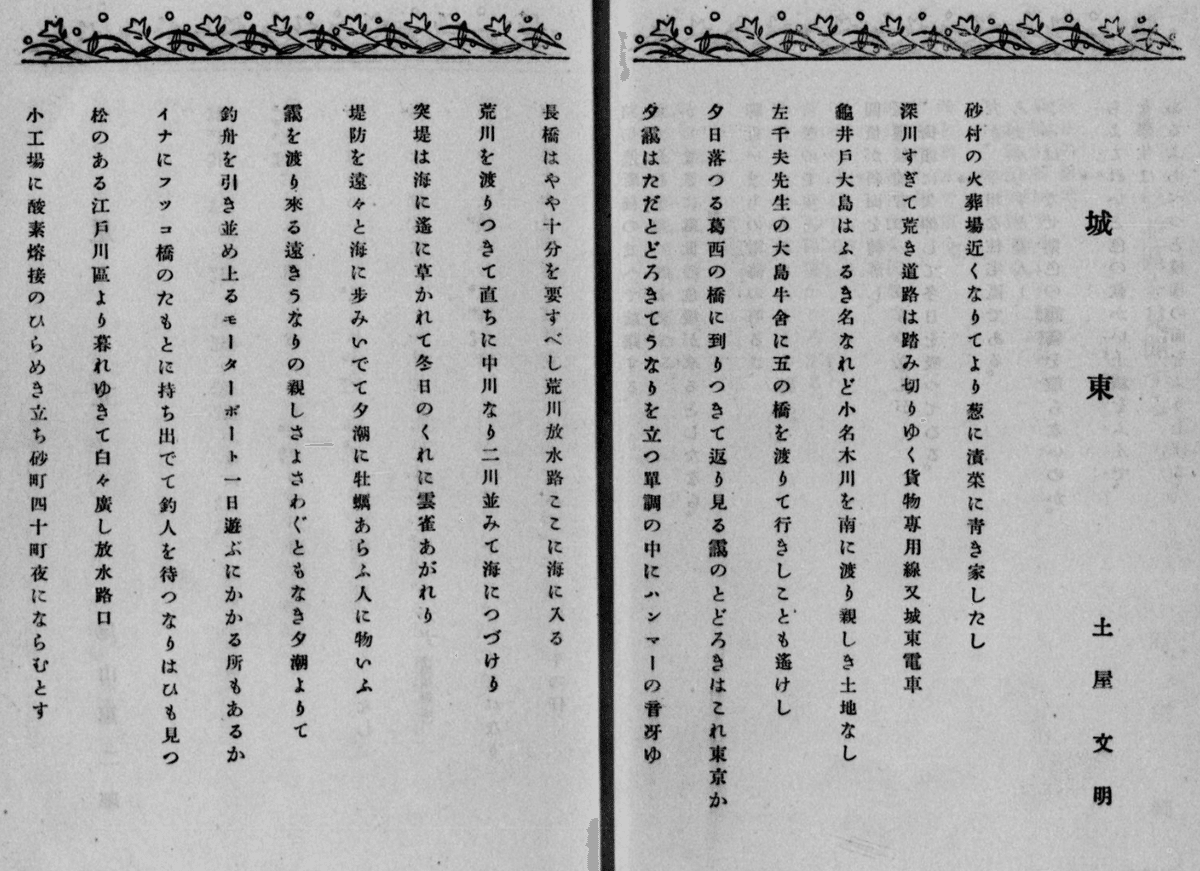 城東
土屋文明
砂村の火葬場近くなりてより葱に漬菜に靑き家したし
深川すぎて荒き道路は踏み切りゆく貨物專用線又城東電車
龜井戶大島はふるき名なれど小名木川を南に渡り親しき土地なし
左千夫先生の大島牛舍に五の橋を渡りて行きしことも遙けし
夕日落つる葛西の橋に到りつきて返り見る靄のとどろきはこれ東京か
夕靄はただとどろきてうなりを立つ單調の中にハンマーの音冴ゆ
長橋はやや十分を要すべし荒川放水路ここに海に入る
荒川を渡りつきて直ちに中川なり二川並みて海につづけり
突堤は海に遙に草かれて冬日のくれに雲雀あがれり
堤防を遠々と海に步みいでて夕潮に牡蠣あらふ人に物いふ
靄を渡り來る遠きうなりの親しさよさわぐともなき夕潮よりて
釣舟を引き並め上るモーターボート一日遊ぶにかかる所もあるか
イナにフッコ橋のたもとに持ち出でて釣人を待つなりはひも見つ
松のある江戶川區より暮れゆきて白々廣し放水路口
小工場に酸素熔接のひらめき立ち砂町四十町夜にならむとす